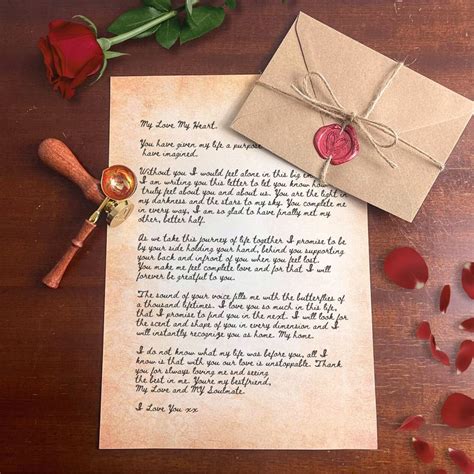 My Love My Heart,
You have given my life a purpose
have imagined.
Without you I would feel alone in this big en
I am writing you this letter to let you know how
truly feel about you and about us. You are the light in
my darkness and the stars to my sky. You complete me
in every way, I am so glad to have finally met my
other, better half.
As we take this journey of life together I promise to be
by your side holding your hand, behind you supporting
your back and infront of you when you feel lost.
You make me feel complete love and for that I will
forever be greatful to you.
The sound of your voice fills me with the butterflies of
a thousand lifetimes. I love you so much in this life,
that I promise to find you in the next. I will look for
the scent and shape of you in every dimension and I will
instantly recognize you as home. My home.
I do not know what my life was before you, all I
know is that with you our love is unstoppable. Thank
you for always loving me and seeing
the best in me. Youre my bestfriend,
My Love and MY Soulmate.
I Love You xx